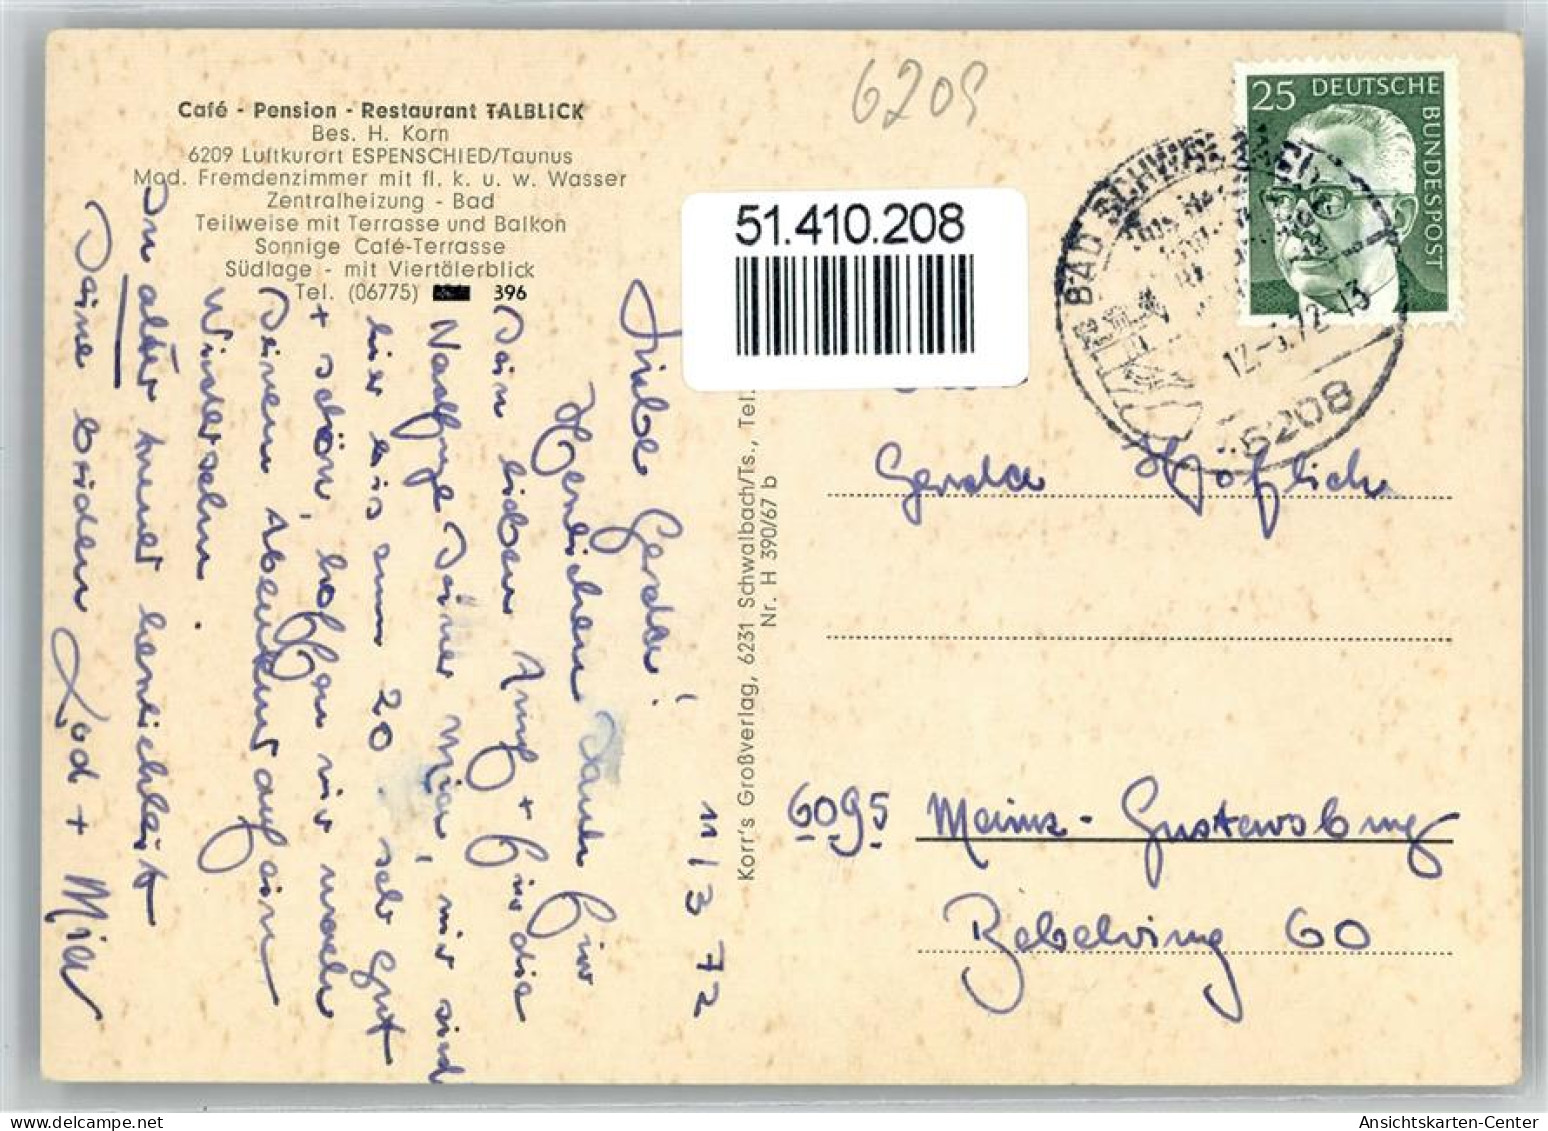 Café - Pension - Restaurant TALBLICK
Bes. H. Korn
6209 Luftkurort ESPENSCHIED/Taunus
Mod. Fremdenzimmer mit fl. k. u. w. Wasser
Zentralheizung - Bad
Teilweise mit Terrasse und Balkon
Sonnige Café-Terrasse
Südlage - mit Viertälerblick
Tel. (06775) 396
11/3 72
Liebe Gerda!
Herzlichen Dank für
Dein lieben Anruf + für die
Nachfrage Deiner Mia, wir sind
hier bis zum 20. seb gut
+ schön, hoffen wir nach
Deinem Abenkurt auf ein
Wiedersehn.
In alter immer herzlichkeit
Deine beiden Lod + Mia
Korr's Großverlag, 6231 Schwalbach/Ts., Tel.
Nr. H 390/67 b
6209
51.410.208
25 DEUTSCHE
BUNDESPOST
BAD SCHWALBACH
12.-3.72-13
6208
Gerda Höflich
6095 Mainz-Gustavsburg
Bebelring 60
Ansichtskarten-Center